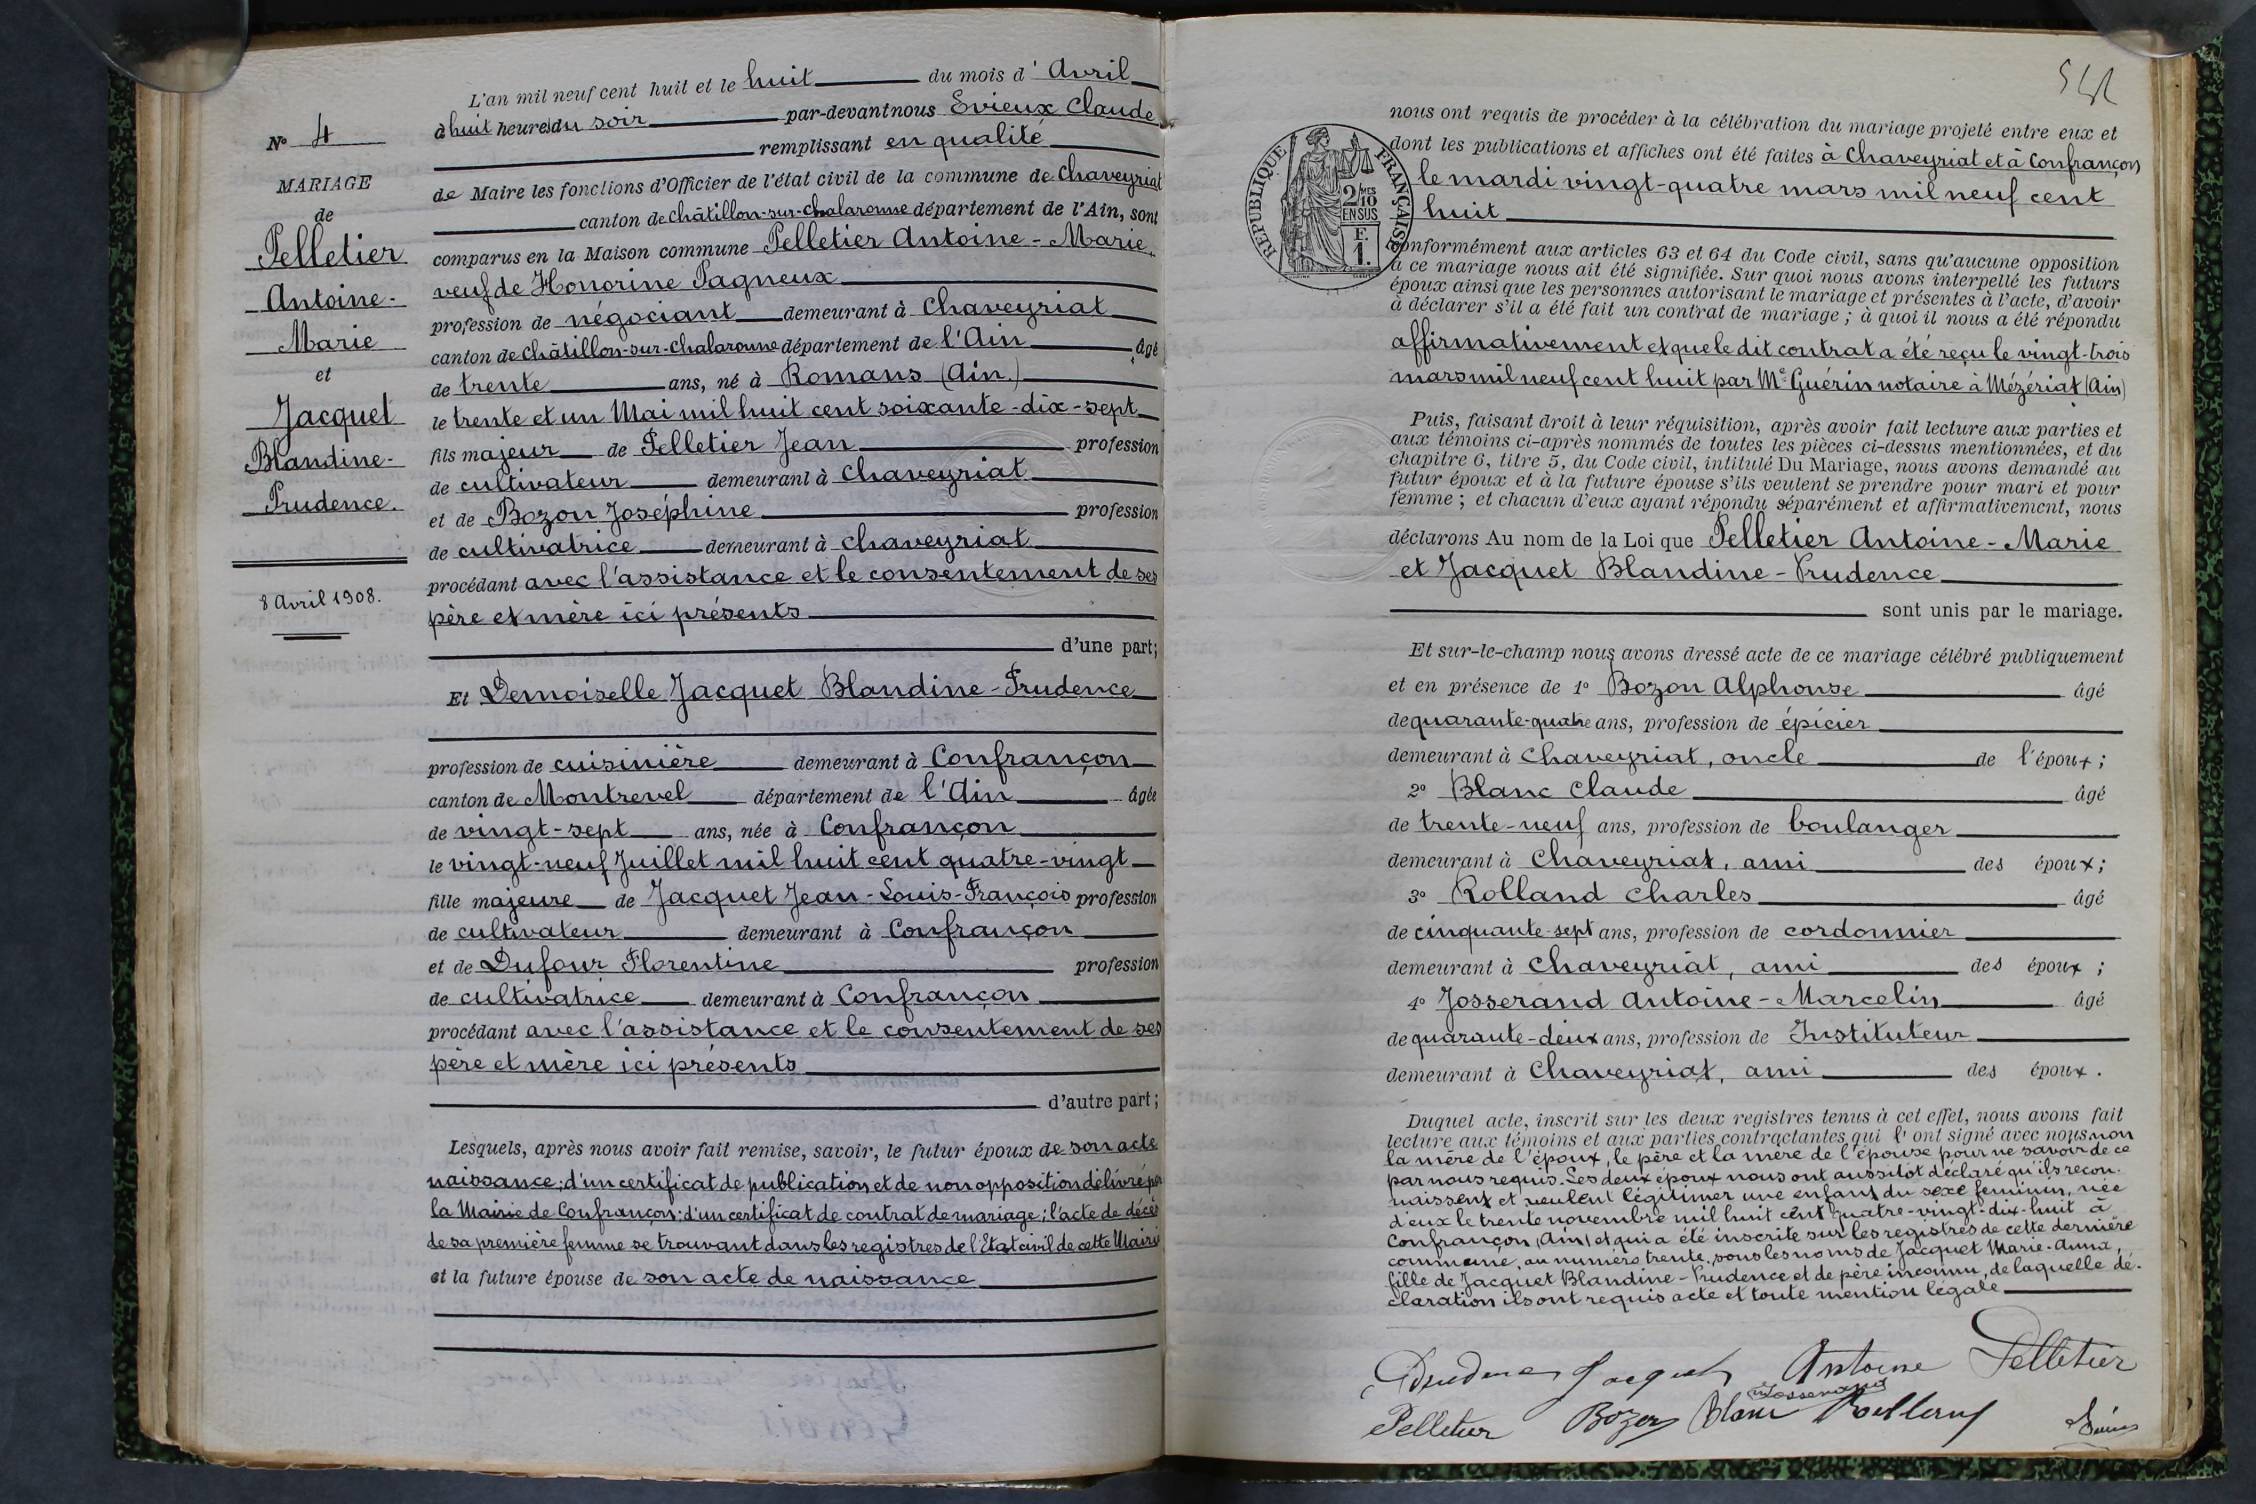 L'an mil neuf cent huit et le huit du mois d'Avril
à huit heures du soir par-devant nous Evieux Claude
remplissant en qualité
de Maire les fonctions d'Officier de l'état civil de la commune de Chaveyriat
canton de Châtillon-sur-Chalaronne département de l'Ain, sont
comparus en la Maison commune Pelletier Antoine-Marie
veuf de Honorine Pagneux
profession de négociant demeurant à Chaveyriat
canton de Châtillon-sur-Chalaronne département de l'Ain âgé
de trente ans, né à Romans (Ain)
le trente et un Mai mil huit cent soixante-dix-sept
fils majeur de Pelletier Jean profession
de cultivateur demeurant à Chaveyriat
et de Bozon Joséphine profession
de cultivatrice demeurant à Chaveyriat
procédant avec l'assistance et le consentement de ses
père et mère ici présents
d'une part;
Et Demoiselle Jacquet Blandine-Prudence
profession de cuisinière demeurant à Confrançon
canton de Montrevel département de l'Ain âgée
de vingt-sept ans, née à Confrançon
le vingt-neuf Juillet mil huit cent quatre-vingt
fille majeure de Jacquet Jean-Louis-François profession
de cultivateur demeurant à Confrançon
et de Dufour Florentine profession
de cultivatrice demeurant à Confrançon
procédant avec l'assistance et le consentement de ses
père et mère ici présents
d'autre part;
Lesquels, après nous avoir fait remise, savoir, le futur époux de son acte
naissance; d'un certificat de publication et de non opposition délivré par
la Mairie de Confrançon; d'un certificat de contrat de mariage; l'acte de décès
de sa première femme se trouvant dans les registres de l'Etat civil de cette Mairie
et la future épouse de son acte de naissance
N° 4
MARIAGE
de
Pelletier
Antoine-
Marie
et
Jacquet
Blandine-
Prudence.
8 Avril 1908.
nous ont requis de procéder à la célébration du mariage projeté entre eux et
dont les publications et affiches ont été faites à Chaveyriat et à Confrançon
le mardi vingt-quatre mars mil neuf cent
huit
conformément aux articles 63 et 64 du Code civil, sans qu'aucune opposition
à ce mariage nous ait été signifiée. Sur quoi nous avons interpellé les futurs
époux ainsi que les personnes autorisant le mariage et présentes à l'acte, d'avoir
à déclarer s'il a été fait un contrat de mariage; à quoi il nous a été répondu
affirmativement et que le dit contrat a été reçu le vingt-trois
mars mil neuf cent huit par Me Guérin notaire à Mézériat (Ain)
Puis, faisant droit à leur réquisition, après avoir fait lecture aux parties et
aux témoins ci-après nommés de toutes les pièces ci-dessus mentionnées, et du
chapitre 6, titre 5, du Code civil, intitulé Du Mariage, nous avons demandé au
futur époux et à la future épouse s'ils veulent se prendre pour mari et pour
femme; et chacun d'eux ayant répondu séparément et affirmativement, nous
déclarons Au nom de la Loi que Pelletier Antoine-Marie
et Jacquet Blandine-Prudence
sont unis par le mariage.
Et sur-le-champ nous avons dressé acte de ce mariage célébré publiquement
et en présence de 1° Bozon Alphonse âgé
de quarante-quatre ans, profession de épicier
demeurant à Chaveyriat, oncle de l'époux;
2° Blanc Claude âgé
de trente-neuf ans, profession de boulanger
demeurant à Chaveyriat, ami des époux;
3° Rolland Charles âgé
de cinquante-sept ans, profession de cordonnier
demeurant à Chaveyriat, ami des époux;
4° Josserand Antoine-Marcelin âgé
de quarante-deux ans, profession de Instituteur
demeurant à Chaveyriat, ami des époux.
Duquel acte, inscrit sur les deux registres tenus à cet effet, nous avons fait
lecture aux témoins et aux parties contractantes qui l'ont signé avec nous non
la mère de l'époux, le père et la mère de l'épouse pour ne savoir de ce
par nous requis. Les deux époux nous ont aussitôt déclaré qu'ils recon-
naissent et veulent légitimer une enfant du sexe feminin, née
d'eux le trente novembre mil huit cent quatre-vingt-dix-huit à
Confrançon (Ain) et qui a été inscrite sur les registres de cette dernière
commune, au numéro trente, sous les noms de Jacquet Marie-Anna,
fille de Jacquet Blandine-Prudence et de père inconnu, de laquelle dé-
claration ils ont requis acte et toute mention légale
Prudence Jacquet Antoine Pelletier
Josserand
Pelletier Bozon Blanc Rolland Evieux
RÉPUBLIQUE FRANÇAISE
2/10 MES
EN SUS
F.
1.